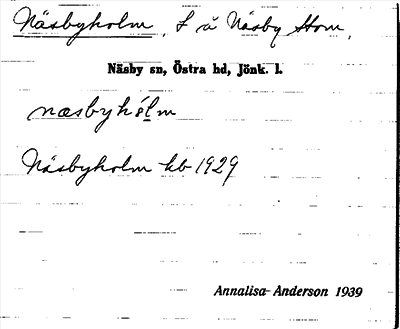 Näsbyholm, L å Näsby Hom,
Näsby sn, Östra hd, Jönk. l.
næsbyhólm
Näsbyholm kb 1929
Annalisa Anderson 1939